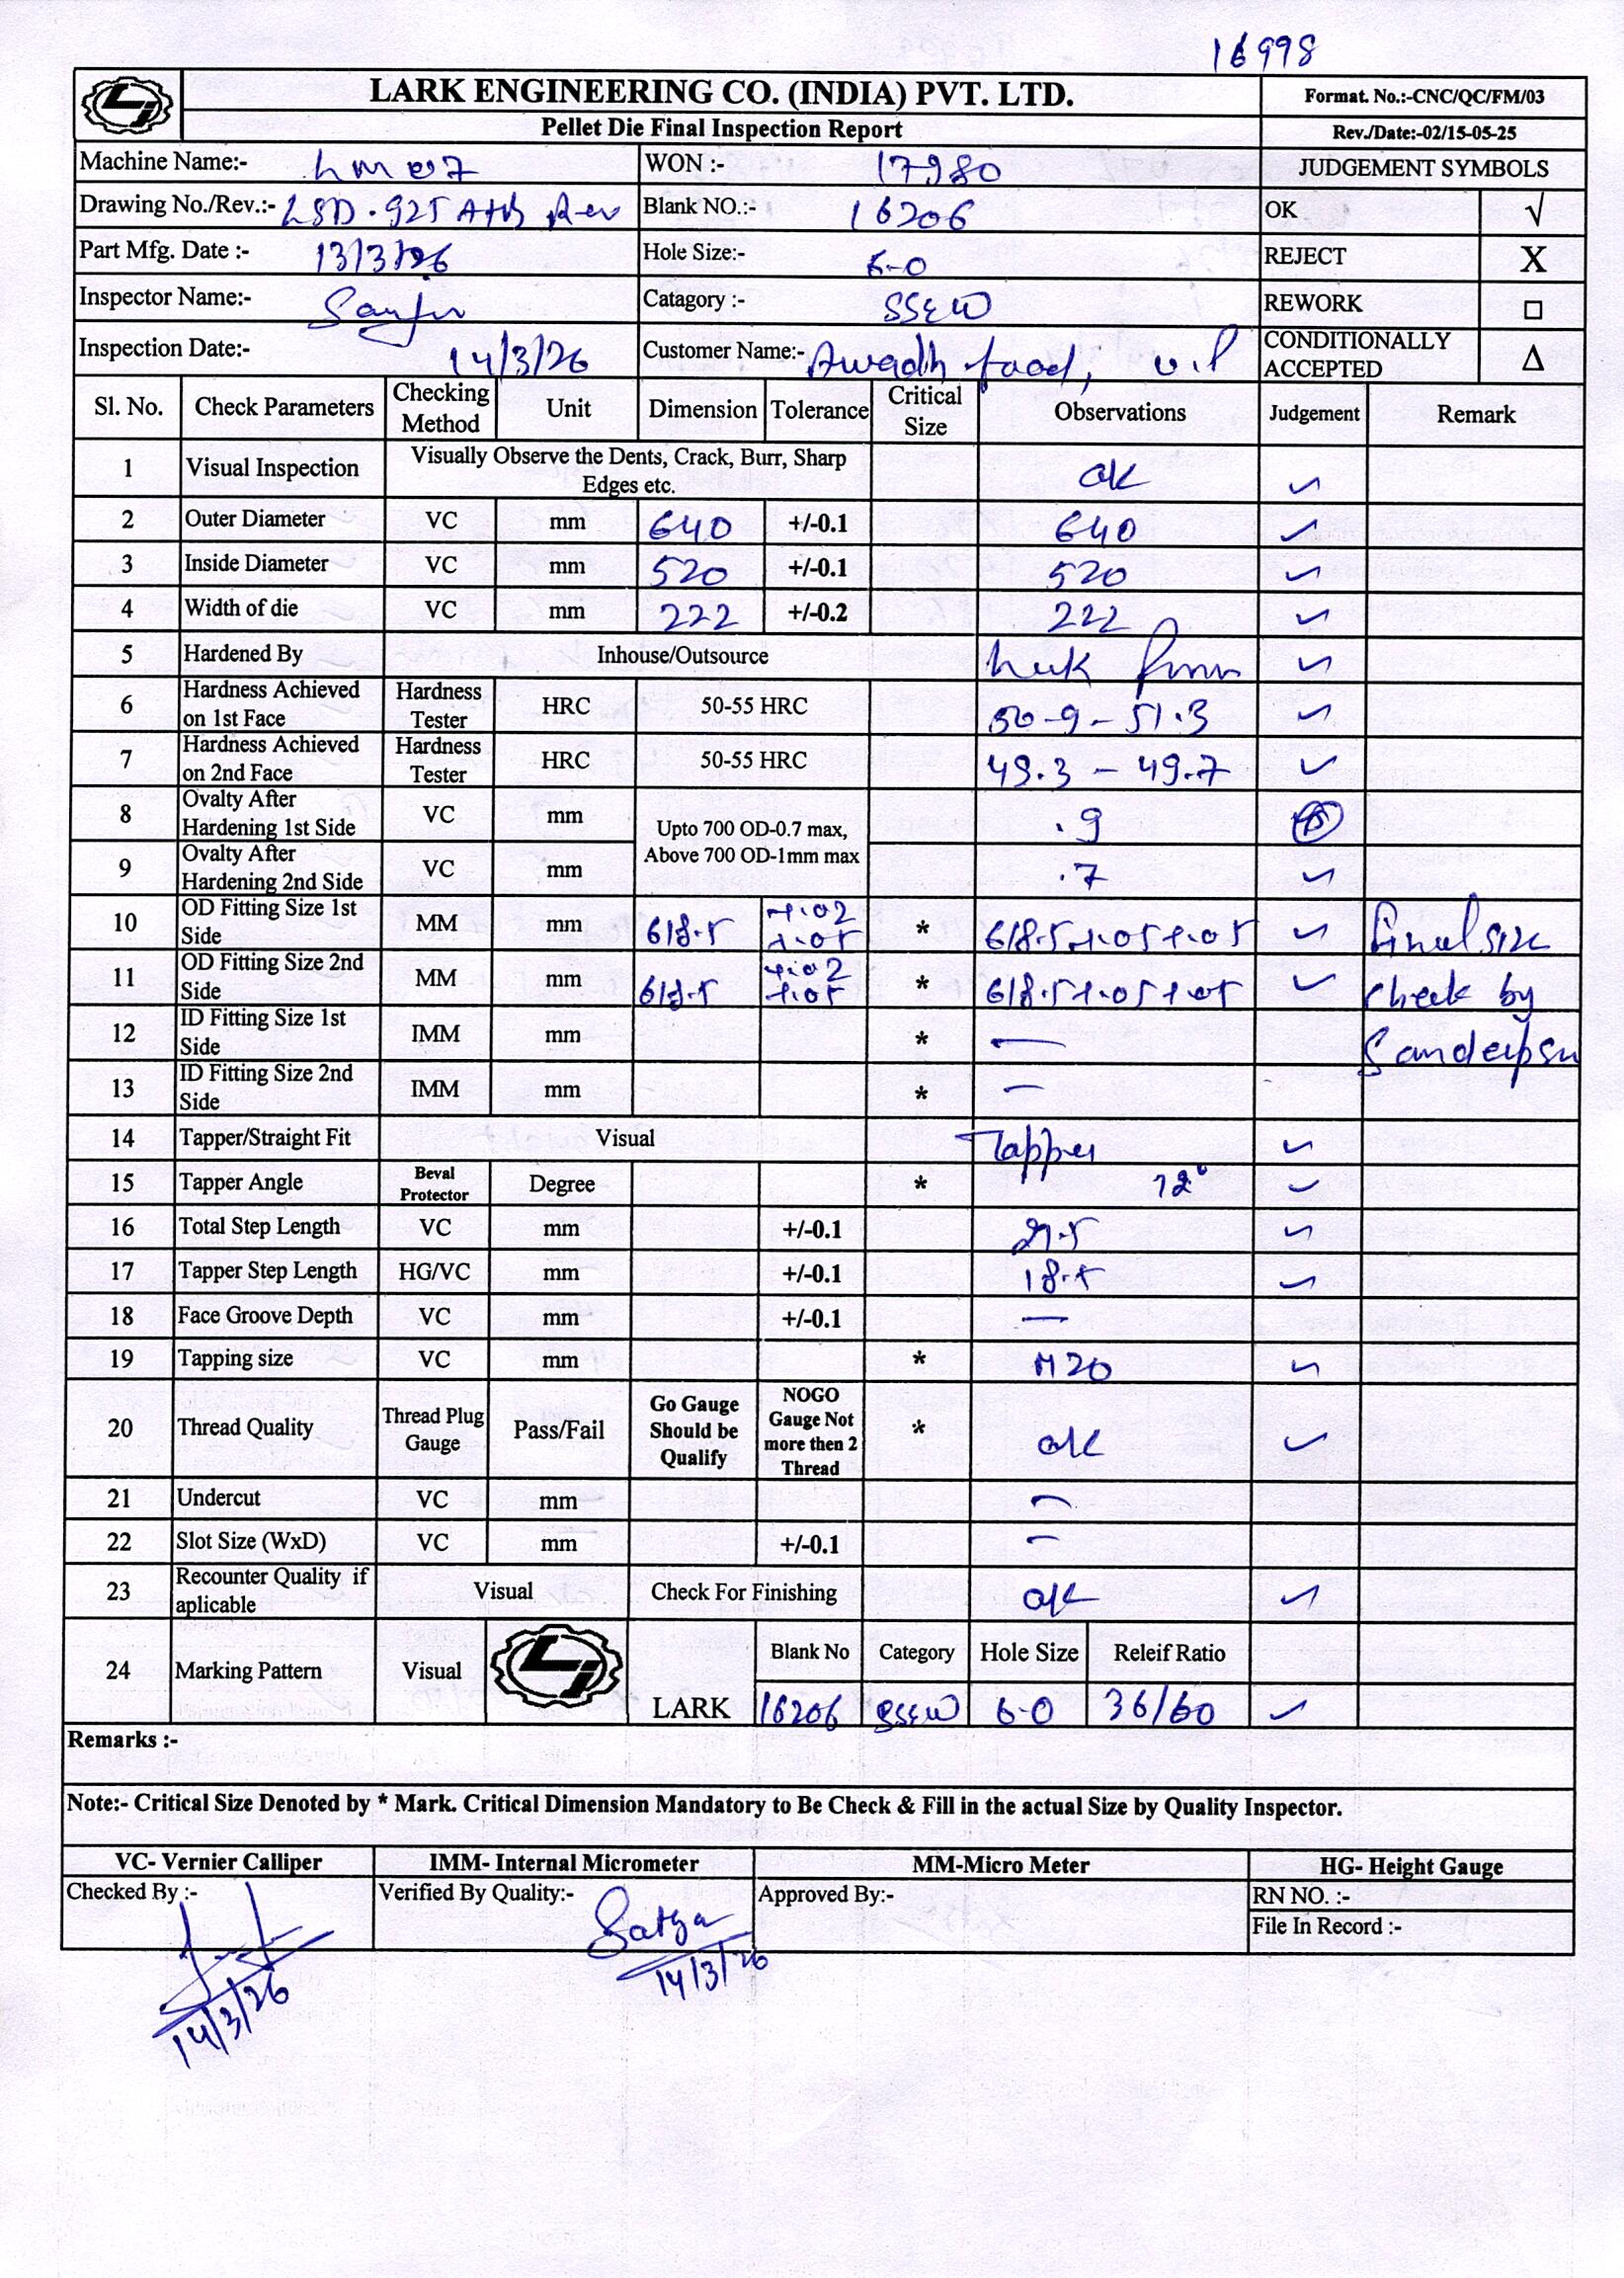 16998
LARK ENGINEERING CO. (INDIA) PVT. LTD.
Format. No.:-CNC/QC/FM/03
Pellet Die Final Inspection Report
Rev./Date:-02/15-05-25
Machine Name:- WON :- 17980 JUDGEMENT SYMBOLS
Drawing No./Rev.:- LSD-925 Rev Blank NO.:- 16206 OK √
Part Mfg. Date :- 13/3/26 Hole Size:- 6-0 REJECT X
Inspector Name:- Catagory :- SS&W REWORK □
Inspection Date:- 14/3/26 Customer Name:- Awadh food, U.P CONDITIONALLY ACCEPTED Δ
Sl. No. Check Parameters Checking Method Unit Dimension Tolerance Critical Size Observations Judgement Remark
1 Visual Inspection Visually Observe the Dents, Crack, Burr, Sharp Edges etc. ok ✓
2 Outer Diameter VC mm 640 +/-0.1 640 ✓
3 Inside Diameter VC mm 520 +/-0.1 520 ✓
4 Width of die VC mm 222 +/-0.2 222 ✓
5 Hardened By Inhouse/Outsource ✓
6 Hardness Achieved on 1st Face Hardness Tester HRC 50-55 HRC 50-9 - 51.3 ✓
7 Hardness Achieved on 2nd Face Hardness Tester HRC 50-55 HRC 49.3 - 49.7 ✓
8 Ovalty After Hardening 1st Side VC mm Upto 700 OD-0.7 max, Above 700 OD-1mm max .9
9 Ovalty After Hardening 2nd Side VC mm .7 ✓
10 OD Fitting Size 1st Side MM mm 618.5 +.02 +.05 * 618.5+.05+.05 ✓ final size
11 OD Fitting Size 2nd Side MM mm 618.5 +.02 +.05 * 618.5+.05+.05 ✓ check by
12 ID Fitting Size 1st Side IMM mm * — Sandeep
13 ID Fitting Size 2nd Side IMM mm * —
14 Tapper/Straight Fit Visual Tapper ✓
15 Tapper Angle Beval Protector Degree * 12° ✓
16 Total Step Length VC mm +/-0.1 ✓
17 Tapper Step Length HG/VC mm +/-0.1 18.5 ✓
18 Face Groove Depth VC mm +/-0.1 —
19 Tapping size VC mm * M20 ✓
20 Thread Quality Thread Plug Gauge Pass/Fail Go Gauge Should be Qualify NOGO Gauge Not more then 2 Thread * ok ✓
21 Undercut VC mm —
22 Slot Size (WxD) VC mm +/-0.1 —
23 Recounter Quality if aplicable Visual Check For Finishing ok ✓
24 Marking Pattern Visual LARK Blank No Category Hole Size Releif Ratio
16206 SS&W 6-0 36/60 ✓
Remarks :-
Note:- Critical Size Denoted by * Mark. Critical Dimension Mandatory to Be Check & Fill in the actual Size by Quality Inspector.
VC- Vernier Calliper IMM- Internal Micrometer MM-Micro Meter HG- Height Gauge
Checked By :- Verified By Quality:- Satya Approved By:- RN NO. :-
File In Record :-
14/3/26
14/3/26